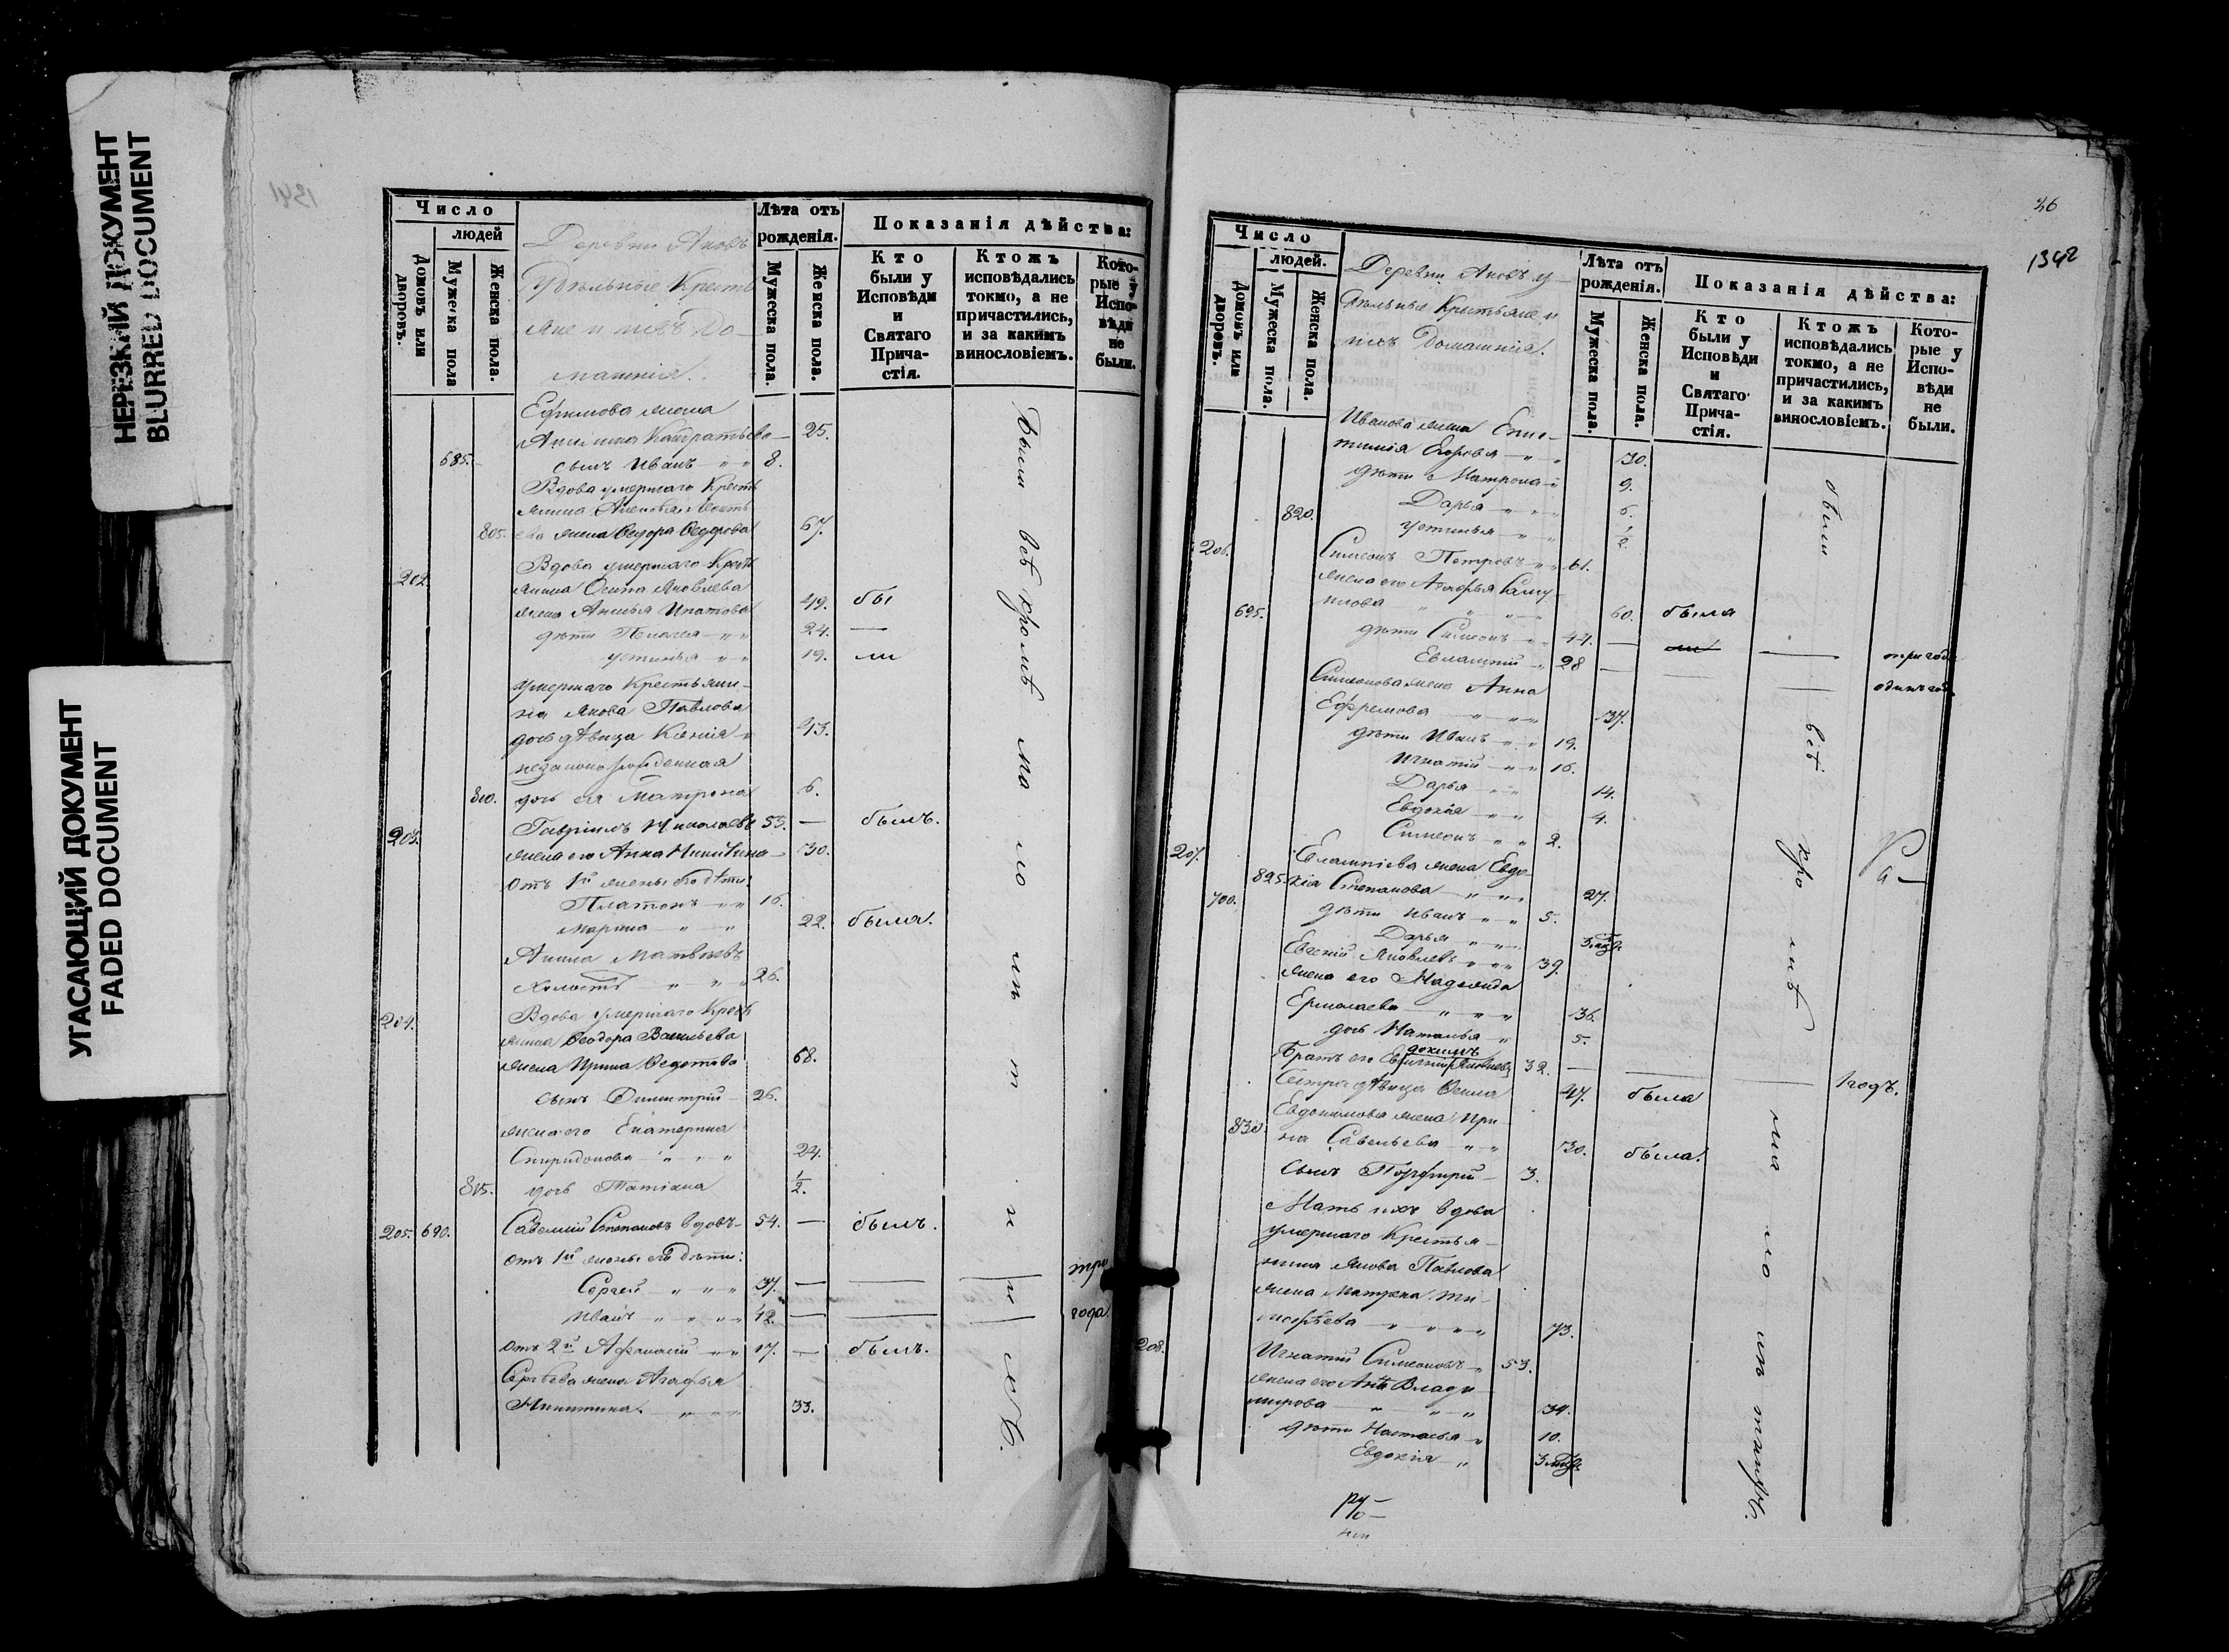 НЕРЕЗКИЙ ДОКУМЕНТ
BLURRED DOCUMENT
УГАСАЮЩИЙ ДОКУМЕНТ
FADED DOCUMENT
1341
Число
людей
Домовъ или дворовъ.
Мужеска пола
Женска пола.
Деревни Яковъ
Удѣльные Кресть
яне и ихъ До-
машнія.
Лѣта отъ рожденія.
Мужеска пола.
Женска пола.
Показанія дѣйства:
Кто были у Исповѣди и Святаго Прича-стія.
Ктожъ исповѣдались токмо, а не причастились, и за какимъ винословіемъ.
Кото-рые у Испо-вѣди не были.
Ефимова жена
Кондратьева 25.
685. сынъ Иванъ 8.
Вдова умершаго Кресть
805. жена Ѳедора Ѳедорова 67.
202. Вдова умершаго Кресть
янина Осипа Яковлева
жена Анисья Ипатова 49. бы
дѣти Пелагея 24. —
Устинья 19. ли
Умершаго Крестьяни-
на Якова Павлова
дочь дѣвица Ксенія 43.
незаконорожденная
810. дочь ея Матрона 6.
203. Гавріилъ Николаевъ 53. — былъ.
жена его Анна Никитина 30.
Отъ 1й жены его дѣти:
Платонъ 16.
Марина 22. была.
Матвѣевъ
Холостъ 26.
204. Вдова умершаго Кресть
янина Ѳеодора Васильева
жена Ирина Ѳедотова 68.
сынъ Димитрій 26.
жена его Екатерина
Спиридонова 24.
815. дочь Татіана ½.
205. 690. Савелій Степановъ вдовъ 54. — былъ.
отъ 1й жены его дѣти:
Сергей 37. — три
Иванъ 42. — года.
отъ 2й Афанасій 17. — былъ.
Сергѣева жена Агафья
Никитина. 33.
Были всѣ кромѣ ма ло лѣ т н и хъ.
36
1342
Число
людей.
Домовъ или дворовъ.
Мужеска пола.
Женска пола.
Деревни Яковъ У
дѣльные Крестьяне и
ихъ Домашнія.
Лѣта отъ рожденія.
Мужеска пола.
Женска пола.
Показанія дѣйства:
Кто были у Исповѣди и Святаго Прича-стія.
Ктожъ исповѣдались токмо, а не причастились, и за какимъ винословіемъ.
Кото-рые у Испо-вѣди не были.
Иванова жена Епис-
тимія Егорова 30.
дѣти Матрона 9.
Дарья 6.
820. Устинья ½.
206. Симеонъ Петровъ 61.
жена его Агафья Саму
илова 60. была
695. дѣти Симеонъ 44. — три года
Евлампій 28 — одинъ годъ
Симеонова жена Анна
Ефремова 37.
дѣти Иванъ 19.
Игнатій 16.
Дарья 14.
Евдокія 4.
Симеонъ 2.
207. Евлампіева жена Евдо
825. кія Степанова 27.
700. дѣти Иванъ 5.
Дарья 3
Евгеній Яковлевъ 39.
жена его
Ермолаева 36.
дочь Наталья 5.
Братъ его Яковлевъ 32. — 1 годъ.
Сестра дѣвица 47. была
Евдокимова жена Ири-
830 на Савельева 30. была.
сынъ Порфирій 3.
Мать ихъ вдова
умершаго Крестья-
нина Якова Павлова
жена Матрена Ти-
моѳѣева 73.
208. Игнатій Симеоновъ 53.
жена его Анна Влади
мирова 34.
дѣти Настасья 10.
Евдокія 3
были всѣ кро мѣ ма ло лѣтнихъ.